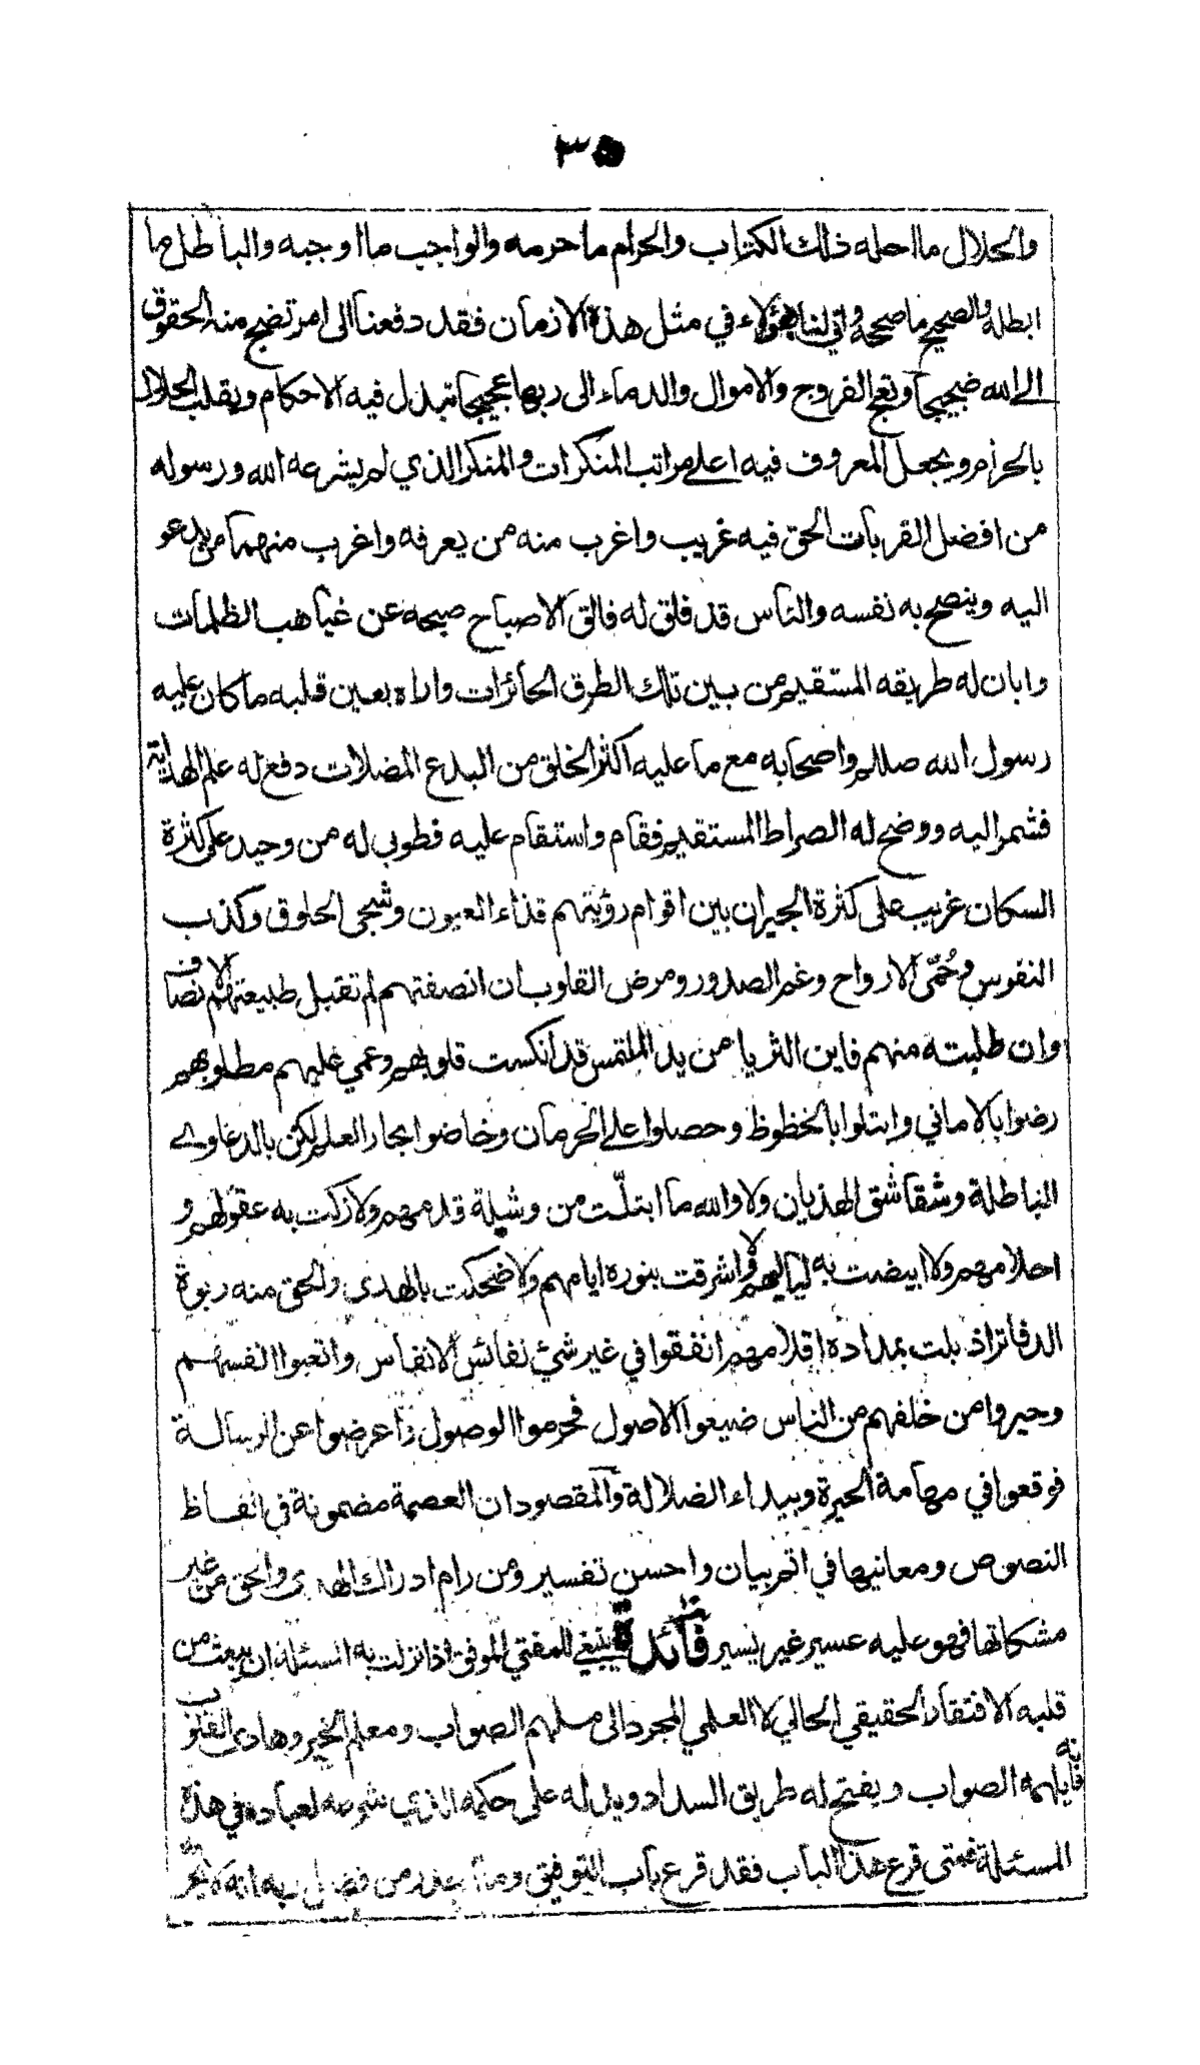 ٣٥
والحلال ما احله ذلك الكتاب والحرام ما حرمه والواجب ما اوجبه والباطل ما
ابطله والصحيح ما صححه واني لنا بهؤلاء في مثل هذه الازمان فقد دفعنا الى امر تضج منه الحقوق
الى الله ضجيجا وتعج الفروج والاموال والدماء الى ربها عجيجا تبدل فيه الاحكام ويقلب الحلال
بالحرام ويجعل المعروف فيه اعلى مراتب المنكرات والمنكر الذي لم يشرعه الله ورسوله
من افضل القربات الحق فيه غريب واغرب منه من يعرفه واغرب منهما من يدعو
اليه وينصح به نفسه والناس قد فلق له فالق الاصباح صبحه عن غياهب الظلمات
وابان له طريقه المستقيم من بين تلك الطرق الجائرات واراه بعين قلبه ما كان عليه
رسول الله صللم واصحابه مع ما عليه اكثر الخلق من البدع المضلات دفع له علم الهداية
فشمر اليه ووضح له الصراط المستقيم فقام واستقام عليه فطوبى له من وحيد على كثرة
السكان غريب على كثرة الجيران بين اقوام رؤيتهم قذاء العيون وشجى الحلوق وكذب
النفوس وحُمّى الارواح وغم الصدور ومرض القلوب ان انصفتهم لم تقبل طبيعتهم الانصاف
وان طلبته منهم فاين الثريا من يد الملتمس قد انكست قلوبهم وعمي عليهم مطلوبهم
رضوا بالاماني وابتلوا بالخظوظ وحصلوا على الحرمان وخاضوا بحار العلم لكن بالدعاوى
الباطلة وشقاشق الهذيان ولا والله ما ابتلّت من وشيلة قدمهم ولا زكت به عقولهم و
احلامهم ولا ابيضت به لياليهم ولا اشرقت بنوره ايامهم ولا ضحكت بالهدى والحق منه
الدفاتر اذ بلت بمداده اقلامهم انفقوا في غير شئ نفائس الانفاس واتعبوا انفسهم
وحيروا من خلفهم من الناس ضيعوا الاصول فحرموا الوصول واعرضوا عن الرسالة
فوقعوا في مهامة الحيرة وبيداء الضلالة والمقصود ان العصمة مضمونة في الفاظ
النصوص ومعانيها في اتم بيان واحسن تفسير ومن رام ادراك الهدى والحق من غير
مشكاتها فهو عليه عسير غير يسير فائدة ينبغي للمفتي الموفق اذا نزلت به المسئلة ان يبعث من
قلبه الافتقار الحقيقي الحالي لا العلمي المجرد الى ملهم الصواب ومعلم الخير وهادى القلوب
فانه يلهمه الصواب ويفتح له طريق السداد ويدله على حكمه الذي شرعه لعباده في هذه
المسئلة فمتى قرع هذا الباب فقد قرع باب التوفيق من فضل ربه